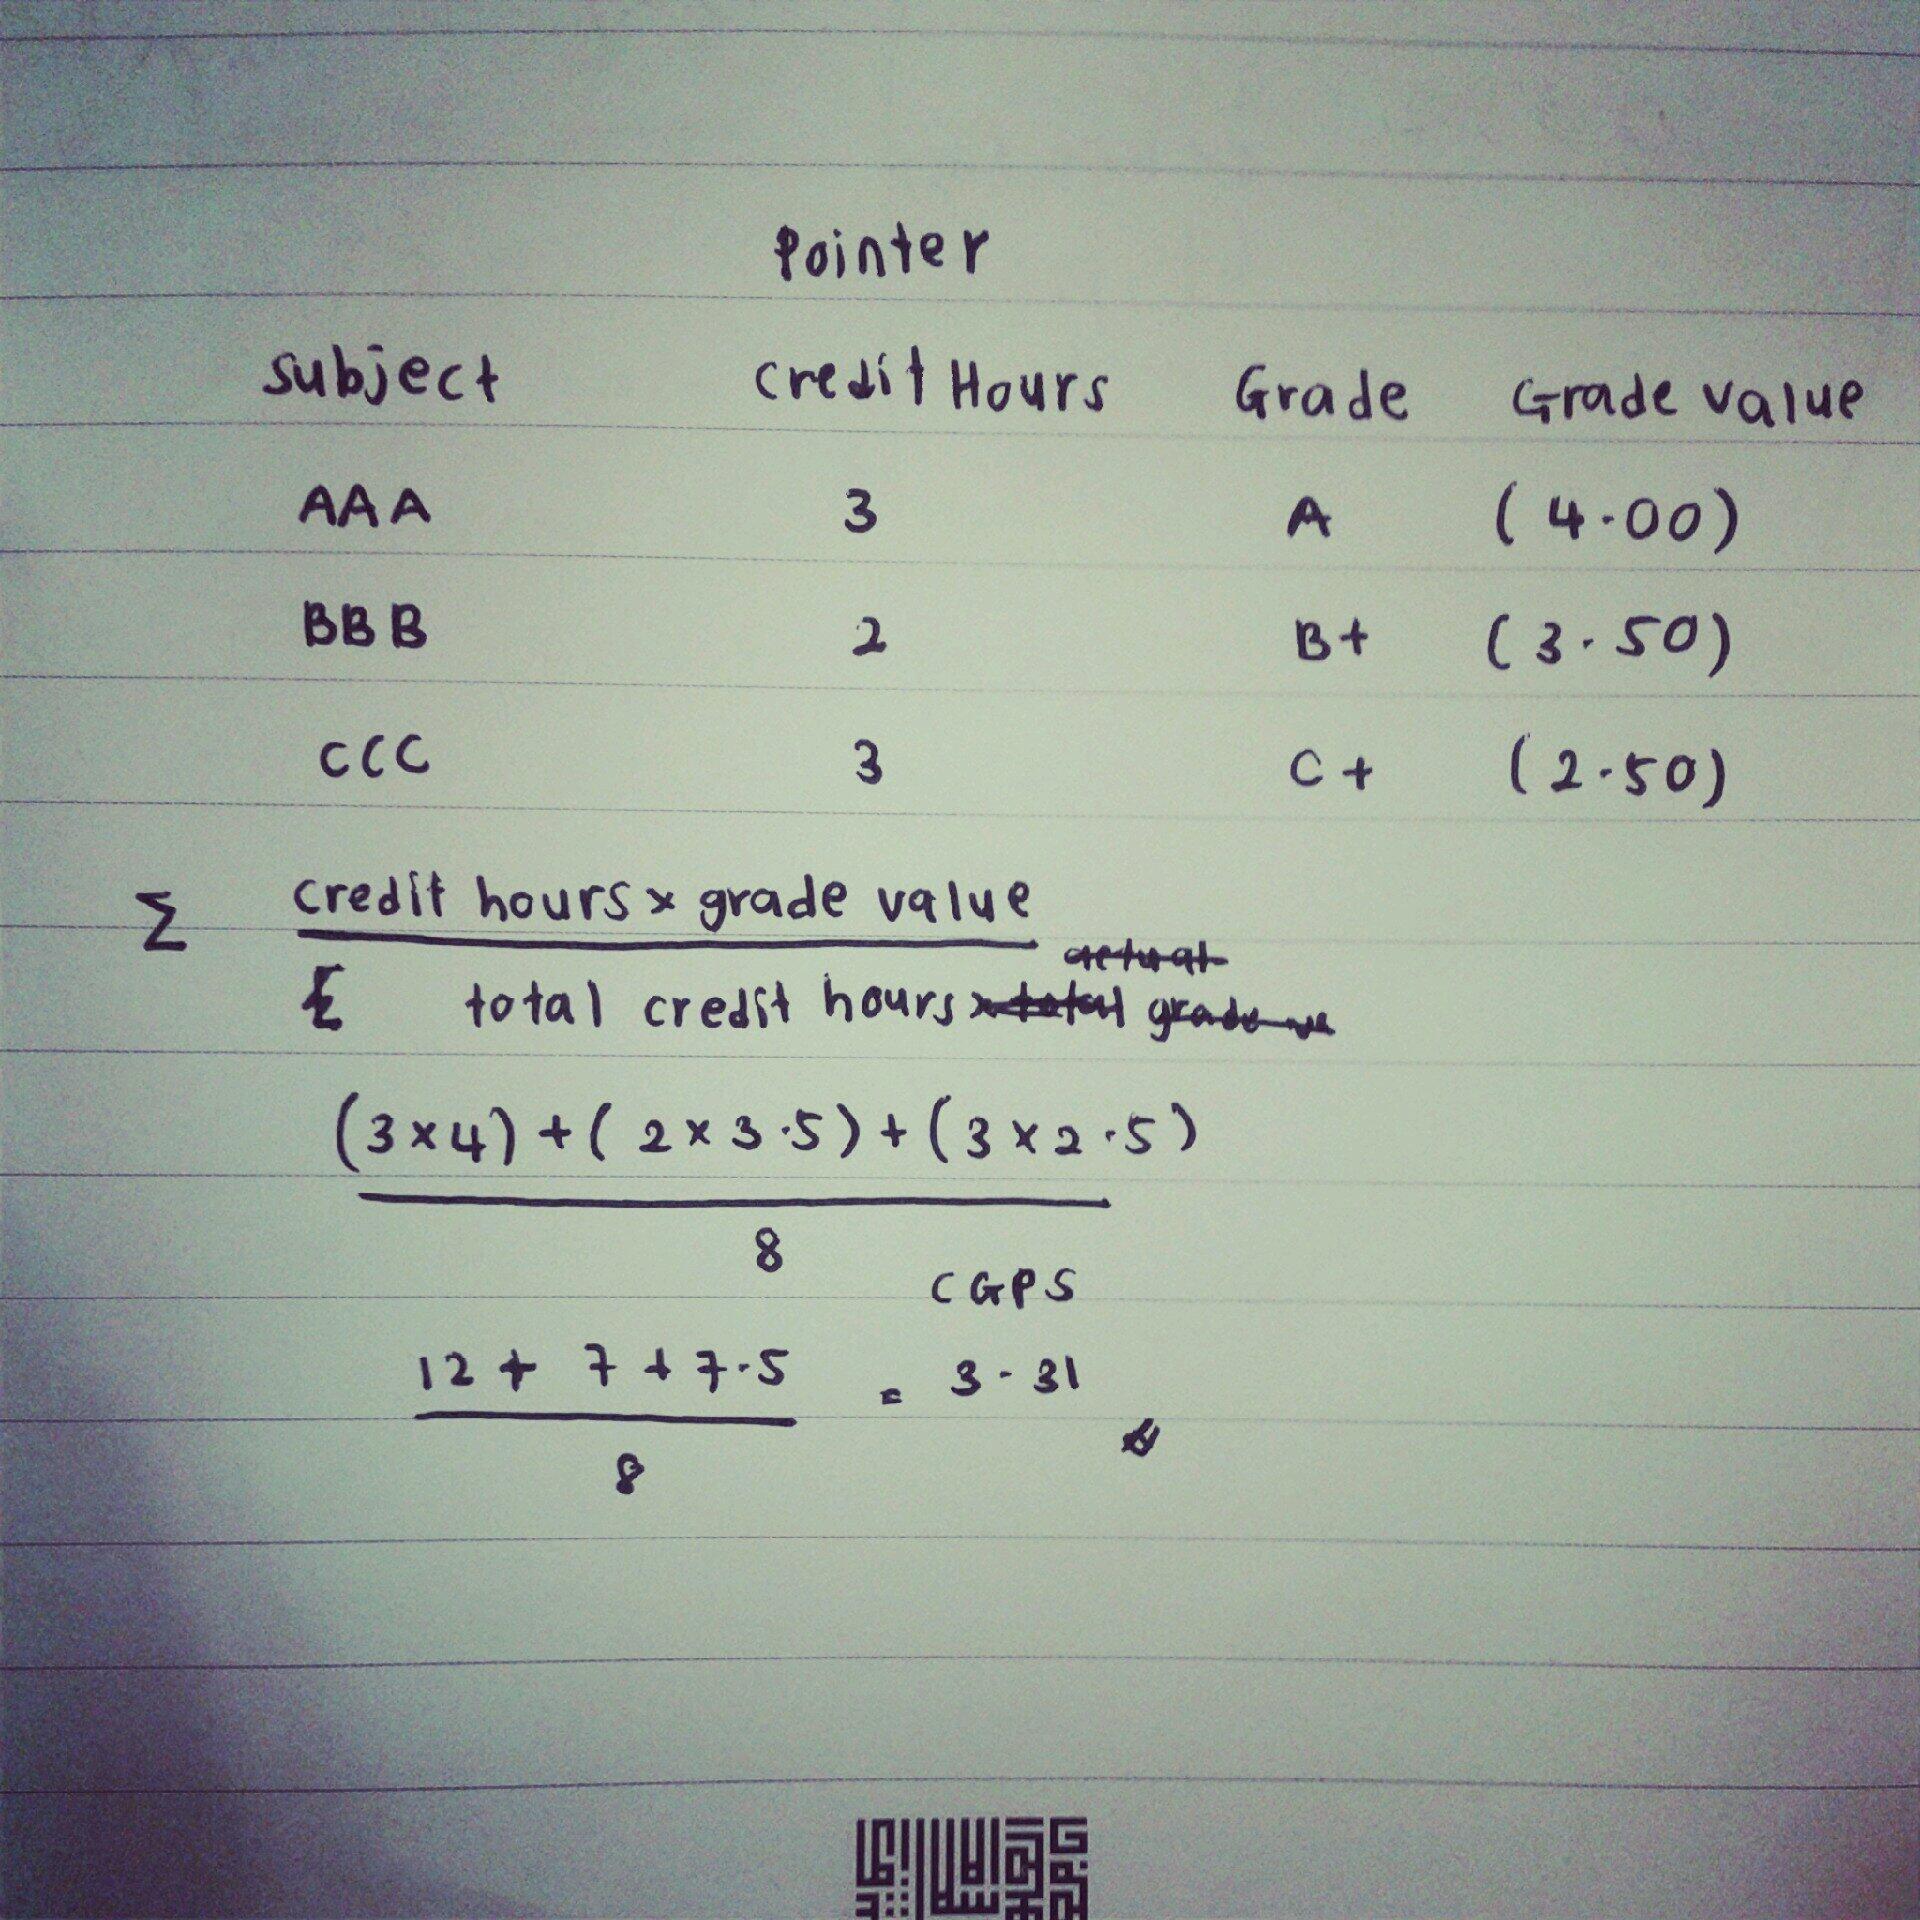 Pointer
Subject Credit Hours Grade Grade value
AAA 3 A (4.00)
BBB 2 B+ (3.50)
CCC 3 C+ (2.50)
Σ credit hours x grade value
actual
Σ total credit hours x total grade
(3x4)+(2x3.5)+(3x2.5)
8
CGPS
12 + 7 + 7.5 = 3.31
8